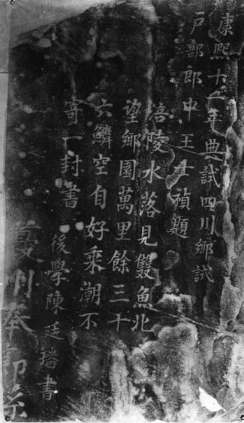 康熙十一年典試四川鄉試
戶部郎中王士禎題
涪陵水落見雙魚北
望鄉園萬里餘三十
六鱗空自好乘潮不
寄一封書
後學陳廷璠書
州奉節